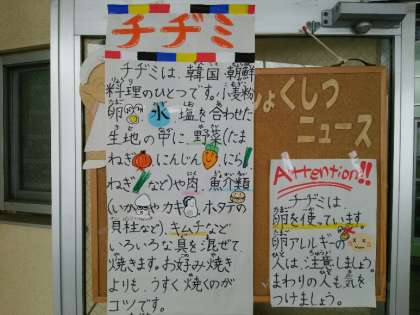 チヂミ
チヂミは、韓国、朝鮮
料理のひとつです。小麦粉
卵 水 塩を合わせた
生地の中に、野菜(たま
ねぎ にんじん にら
ねぎ など)や肉、魚介類
(いか やカキ ホタテの
貝柱など)、キムチなど
いろいろな具を混ぜて
焼きます。お好み焼き
よりも、うすく焼くのが
コツです。
しょくしつ
ニュース
Attention!!
チヂミは、
卵を使っています。
卵アレルギーの
人は、注意しましょう。
まわりの人も気を
つけましょう。